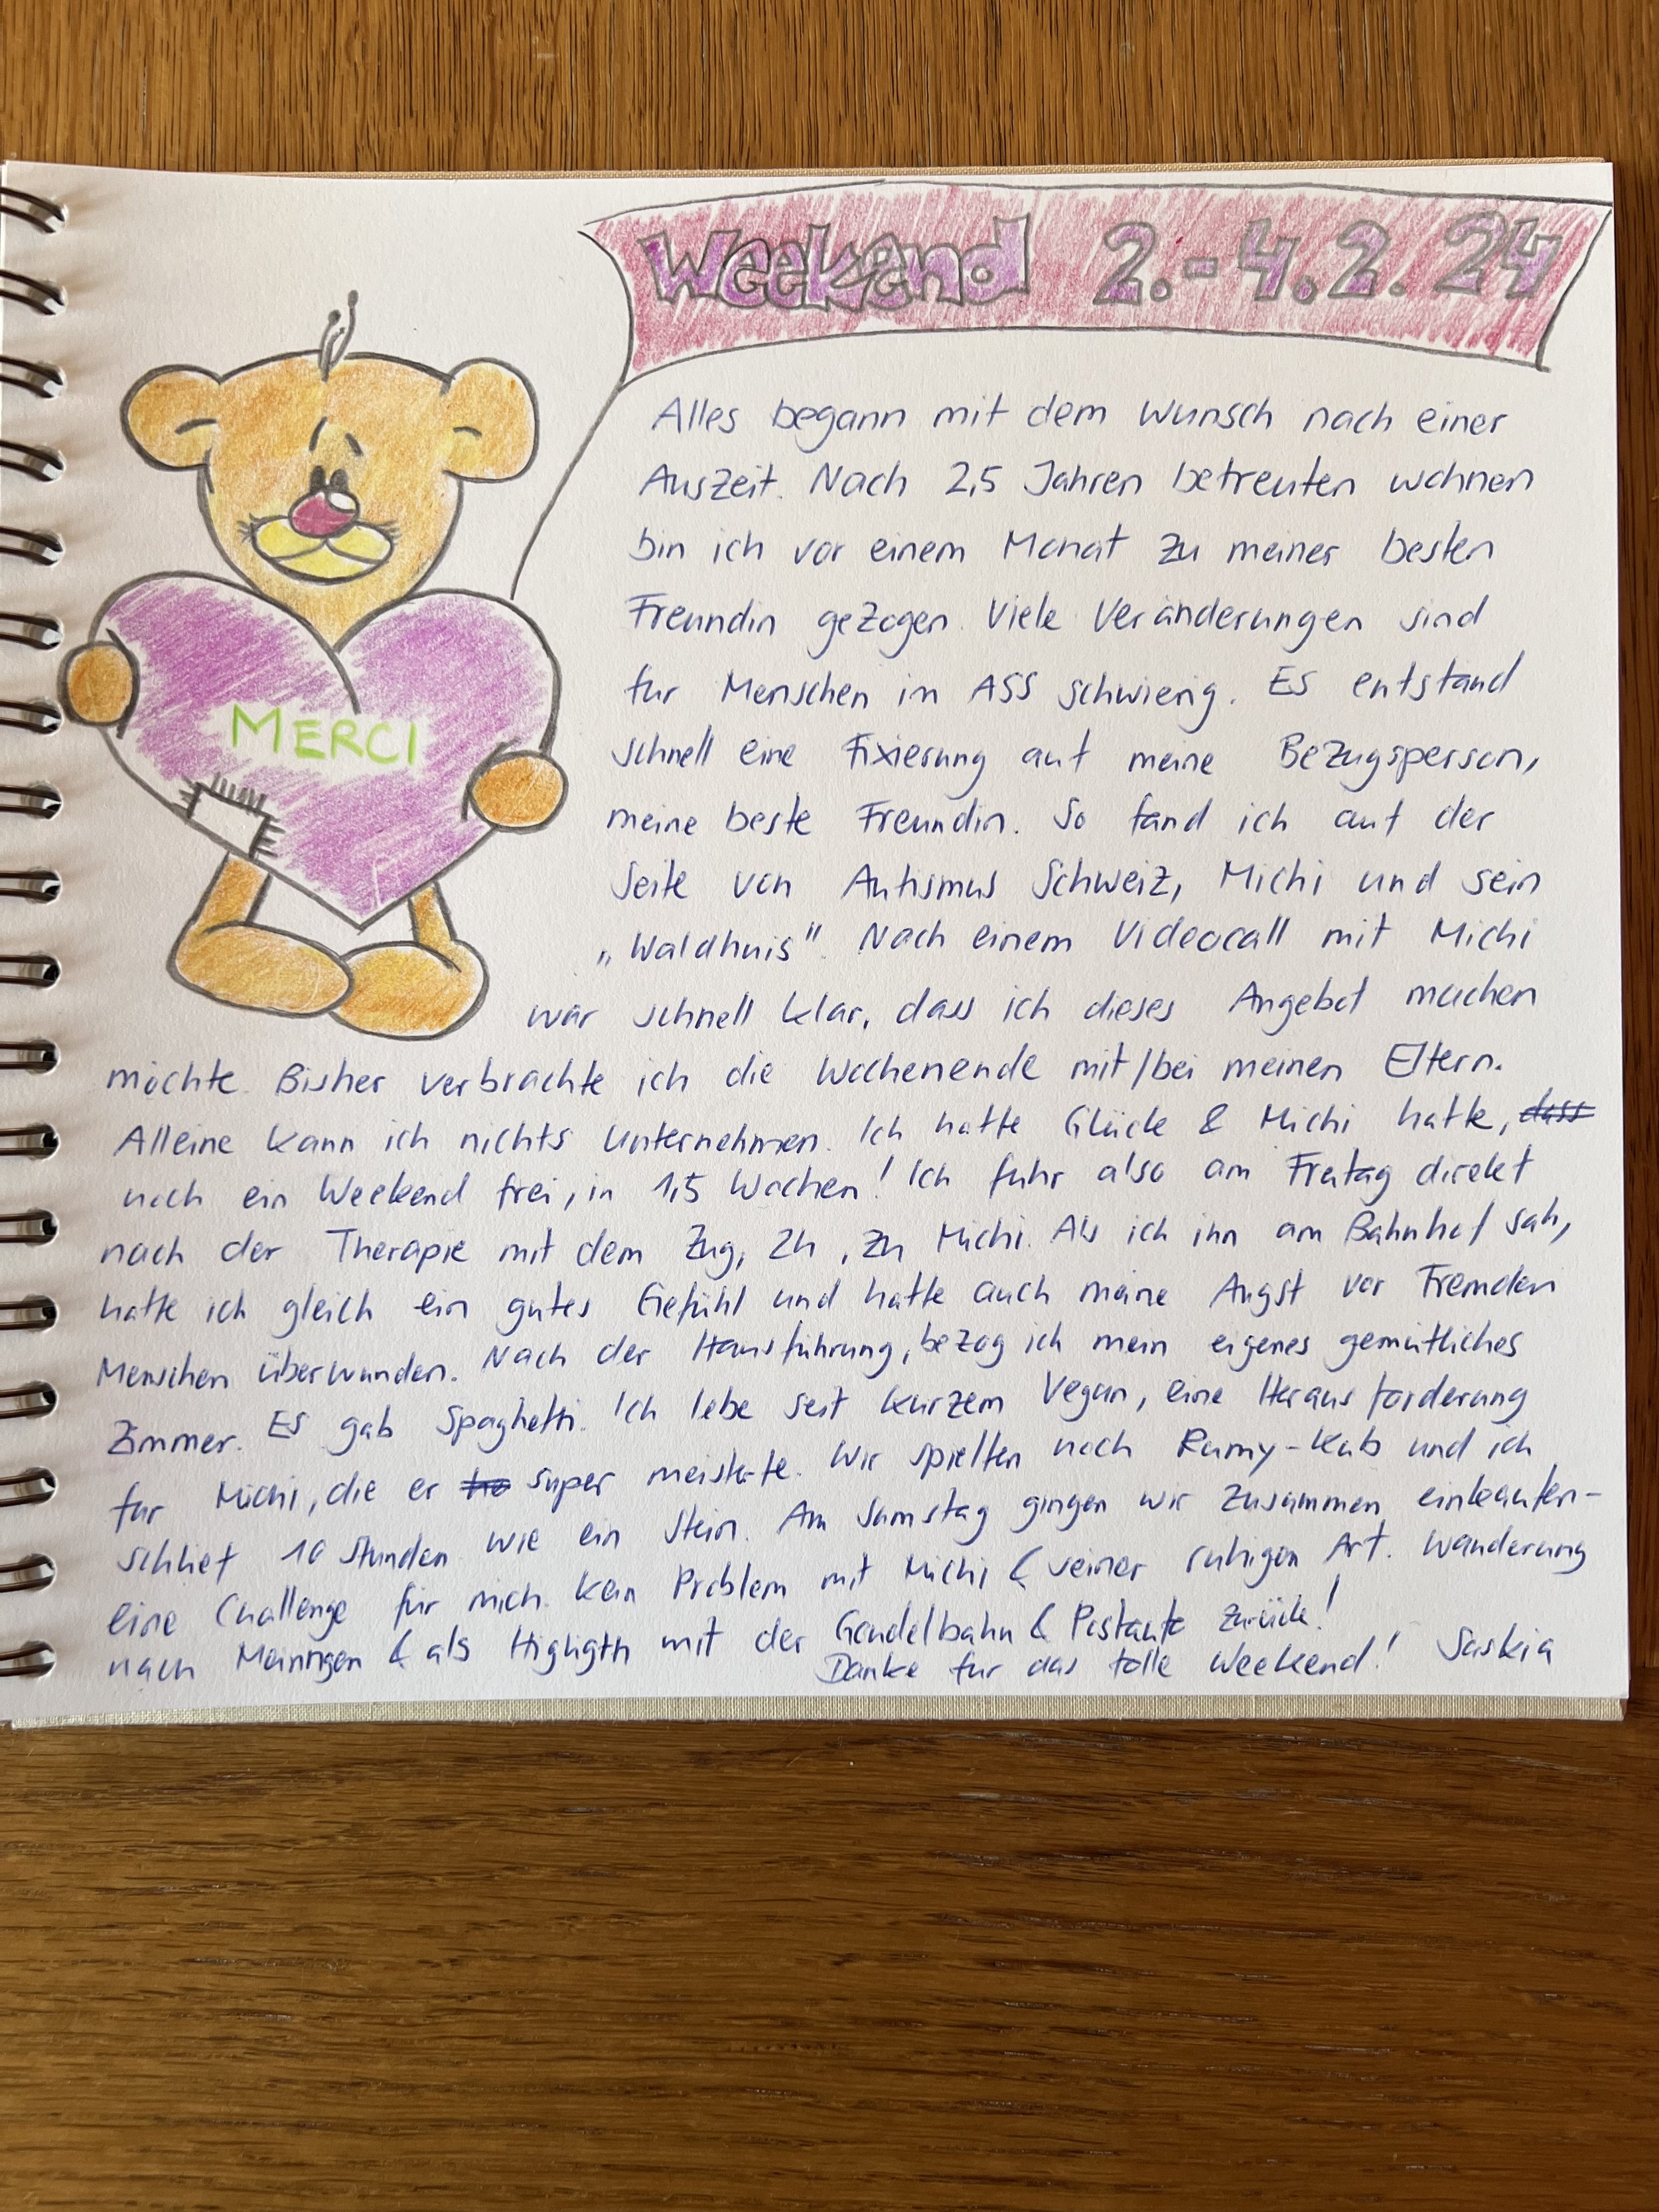 Weekend 2.-4.2.24
MERCI
Alles begann mit dem Wunsch nach einer
Auszeit. Nach 2,5 Jahren betreuten wohnen
bin ich vor einem Monat zu meiner besten
Freundin gezogen. Viele Veränderungen sind
für Menschen im ASS schwierig. Es entstand
schnell eine Fixierung auf meine Bezugsperson,
meine beste Freundin. So fand ich auf der
Seite von Autismus Schweiz, Michi und sein
„Waldhuis". Nach einem Videocall mit Michi
war schnell klar, dass ich dieses Angebot machen
möchte. Bisher verbrachte ich die Wochenende mit/bei meinen Eltern.
Alleine kann ich nichts unternehmen. Ich hatte Glück & Michi hatte, dass
noch ein Weekend frei, in 1,5 Wochen! Ich fuhr also am Freitag direkt
nach der Therapie mit dem Zug, 2h, zu Michi. Als ich ihn am Bahnhof sah,
hatte ich gleich ein gutes Gefühl und hatte auch meine Angst vor Fremden
Menschen überwunden. Nach der Hausführung, bezog ich mein eigenes gemütliches
Zimmer. Es gab Spaghetti. Ich lebe seit kurzem Vegan, eine Herausforderung
für Michi, die er super meisterte. Wir spielten noch Rumy-Kub und ich
schlief 10 Stunden wie ein Stein. Am Samstag gingen wir zusammen einkaufen-
eine Challenge für mich. Kein Problem mit Michi & seiner ruhigen Art. Wanderung
nach Meiringen & als Highligth mit der Gondelbahn & Postauto zurück!
Danke für das tolle Weekend! Saskia